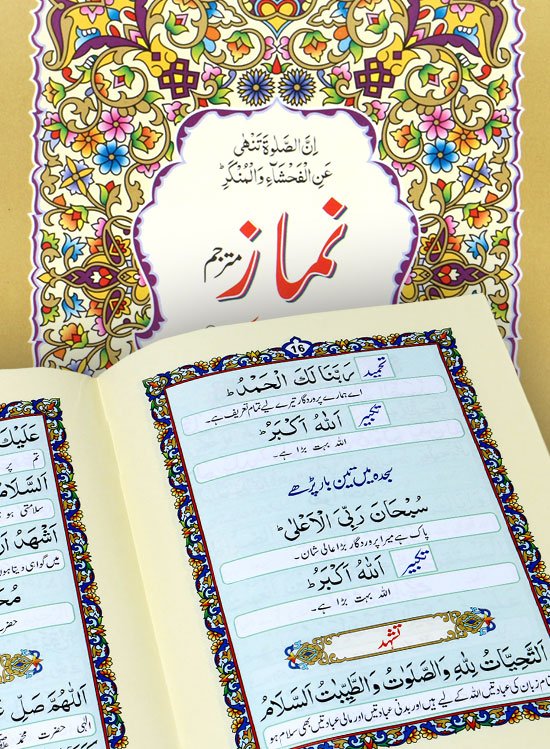 اِنَّ الصَّلٰوةَ تَنْهٰى
عَنِ الْفَحْشَآءِ وَالْمُنْكَرِؕ
نماز
مترجم
16
تحمید رَبَّنَا لَكَ الْحَمْدُؕ
اے ہمارے پروردگار تیرے لیے تمام تعریف ہے۔
تکبیر اَللّٰهُ اَكْبَرُؕ
اللہ بہت بڑا ہے۔
سجدہ میں تین بار پڑھے
سُبْحَانَ رَبِّيَ الْاَعْلٰىؕ
پاک ہے میرا پروردگار بڑا عالی شان۔
تکبیر اَللّٰهُ اَكْبَرُؕ
اللہ بہت بڑا ہے۔
تشہد
اَلتَّحِيَّاتُ لِلّٰهِ وَالصَّلَوٰتُ وَالطَّيِّبٰتُ اَلسَّلَامُ
زبان کی عبادتیں اللہ کے لیے ہیں اور بدنی عبادتیں اور مالی عبادتیں بھی سلام ہو
عَلَيْكَ
تم پر
اَلسَّلَامُ
سلامتی ہو
اَشْهَدُ اَنْ
میں گواہی دیتا ہوں
حضرت
اَللّٰهُمَّ صَلِّ
الٰہی حضرت محمد